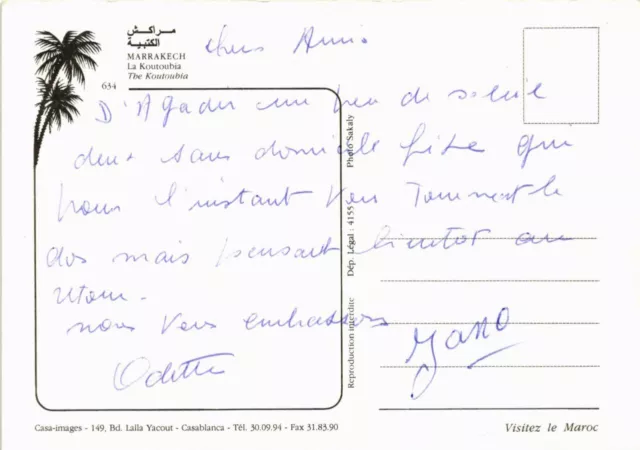 مراكش
الكتبية
MARRAKECH
La Koutoubia
The Koutoubia
634
Chers Amis
D'Agadir un peu de soleil
deux sans domicile fixe qui
pour l'instant vous tournent le
dos mais pensant bientôt au
retour.
nous vous embrassons
Odette
Jano
Reproduction interdite Dép. Légal : 4155 Photo Sakaly
Casa-images - 149, Bd. Lalla Yacout - Casablanca - Tél. 30.09.94 - Fax 31.83.90
Visitez le Maroc